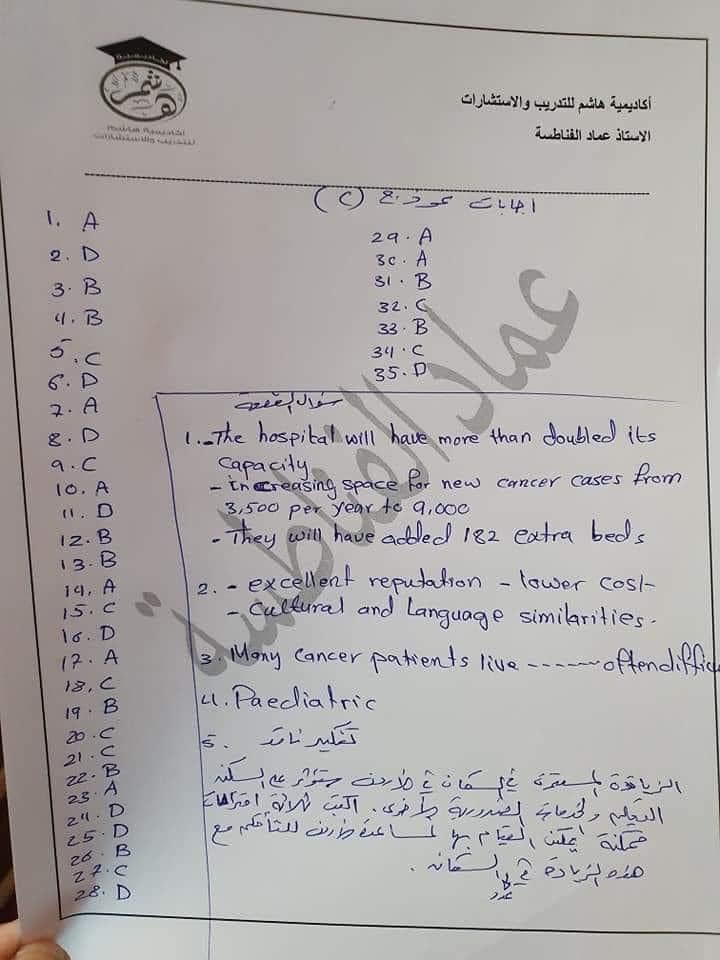 أكاديمية هاشم للتدريب والاستشارات
الاستاذ عماد الفناطسة
أكاديمية هاشم
للتدريب والاستشارات
اجابات نموذج (C)
1. A
2. D
3. B
4. B
5. C
6. D
7. A
8. D
9. C
10. A
11. D
12. B
13. B
14. A
15. C
16. D
17. A
18. C
19. B
20. C
21. C
22. B
23. A
24. D
25. D
26. B
27. C
28. D
29. A
30. A
31. B
32. C
33. B
34. C
35. D
سؤال القطعة
1. The hospital will have more than doubled its
capacity
- increasing space for new cancer cases from
3,500 per year to 9,000
- They will have added 182 extra beds
2. - excellent reputation - lower cost
- Cultural and Language similarities.
3. Many cancer patients live ------- often diffic
4. Paediatric
5. تفكير ناقد
الزيادة المستمرة في السكان في الاردن ستؤثر على السكن
التعليم والخدمات الضرورية الاخرى. اكتب ثلاثة اقتراحات
ممكنة يمكن القيام بها لمساعدة الاردن للتأقلم مع
هذه الزيادة في عدد السكان.
عماد الفناطسة